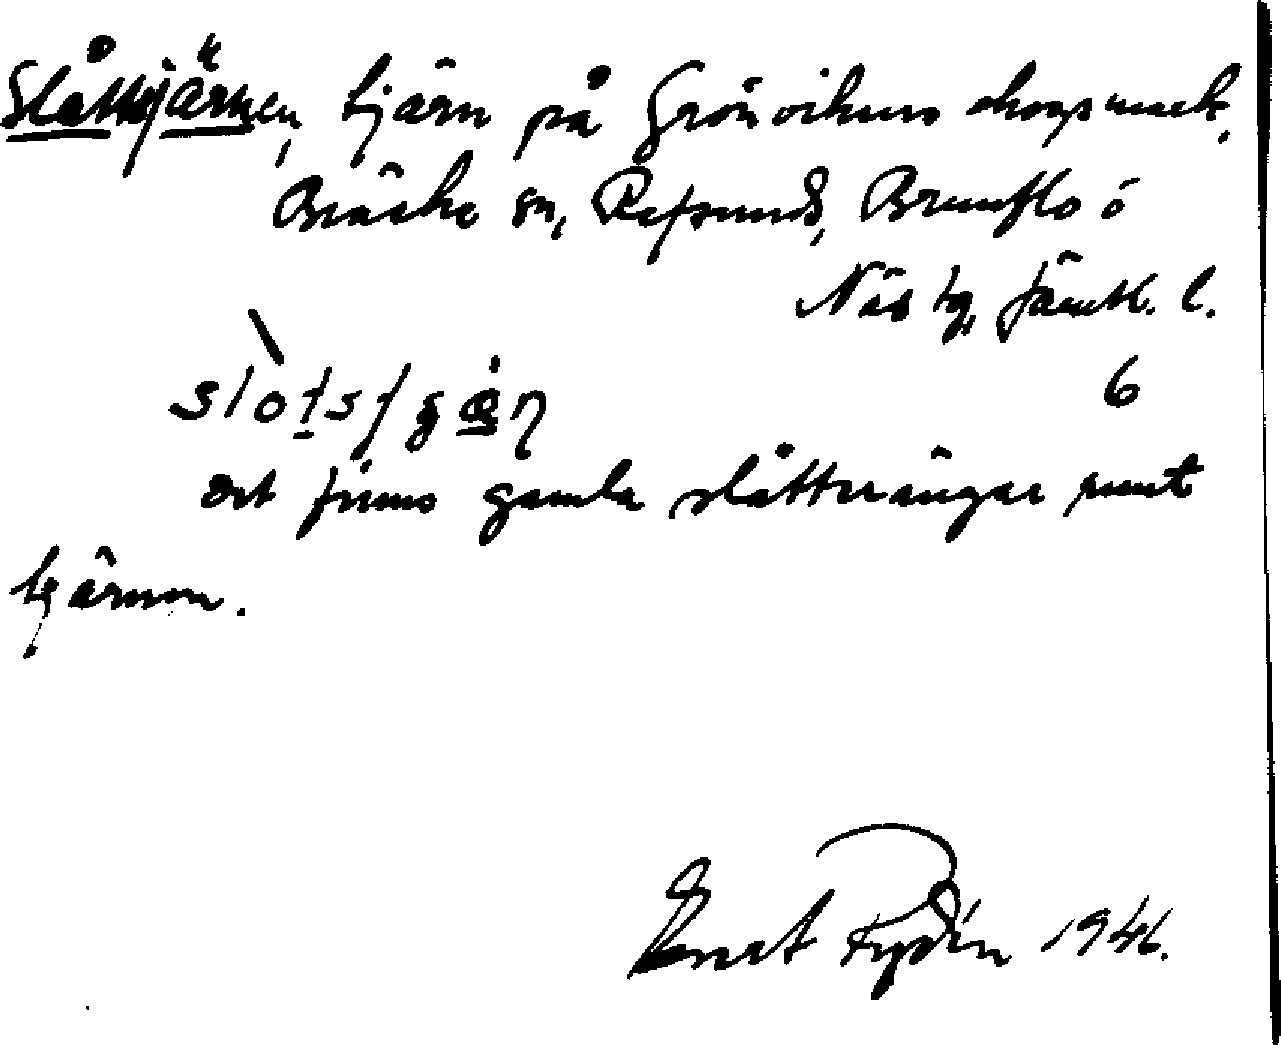 Slåttjärnen, tjärn på Grönvikens skogsmark,
Bräcke sn, Refsunds, Brunflo o
Näs tg, Jämtl. l.
6
det finns gamla slåtterängar runt
tjärnen.
Ernst Rydén 1946.